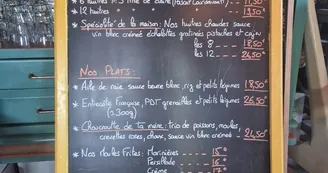 * 6 huîtres N°3
* 12 huîtres " " " 19,50€
* Spécialité de la maison: Nos huîtres chaudes sauce
vin blanc crémée échalottes gratinées pistaches et cajou
les 8 ---- 18,50€
les 12 ---- 24,50€
Nos Plats:
* Aile de raie sauce beurre blanc, riz et petits légumes 18,50€
* Entrecôte française, PDT grenailles et petits légumes 26,50€
(≈300g)
* Choucroute de la mer: trio de poissons, moules
crevettes roses, choux, sauce vin blanc crémée! 24,50€
* Nos Moules Frites: Marinières ---- 15€
Persillade ---- 16€
Crème ---- 17€